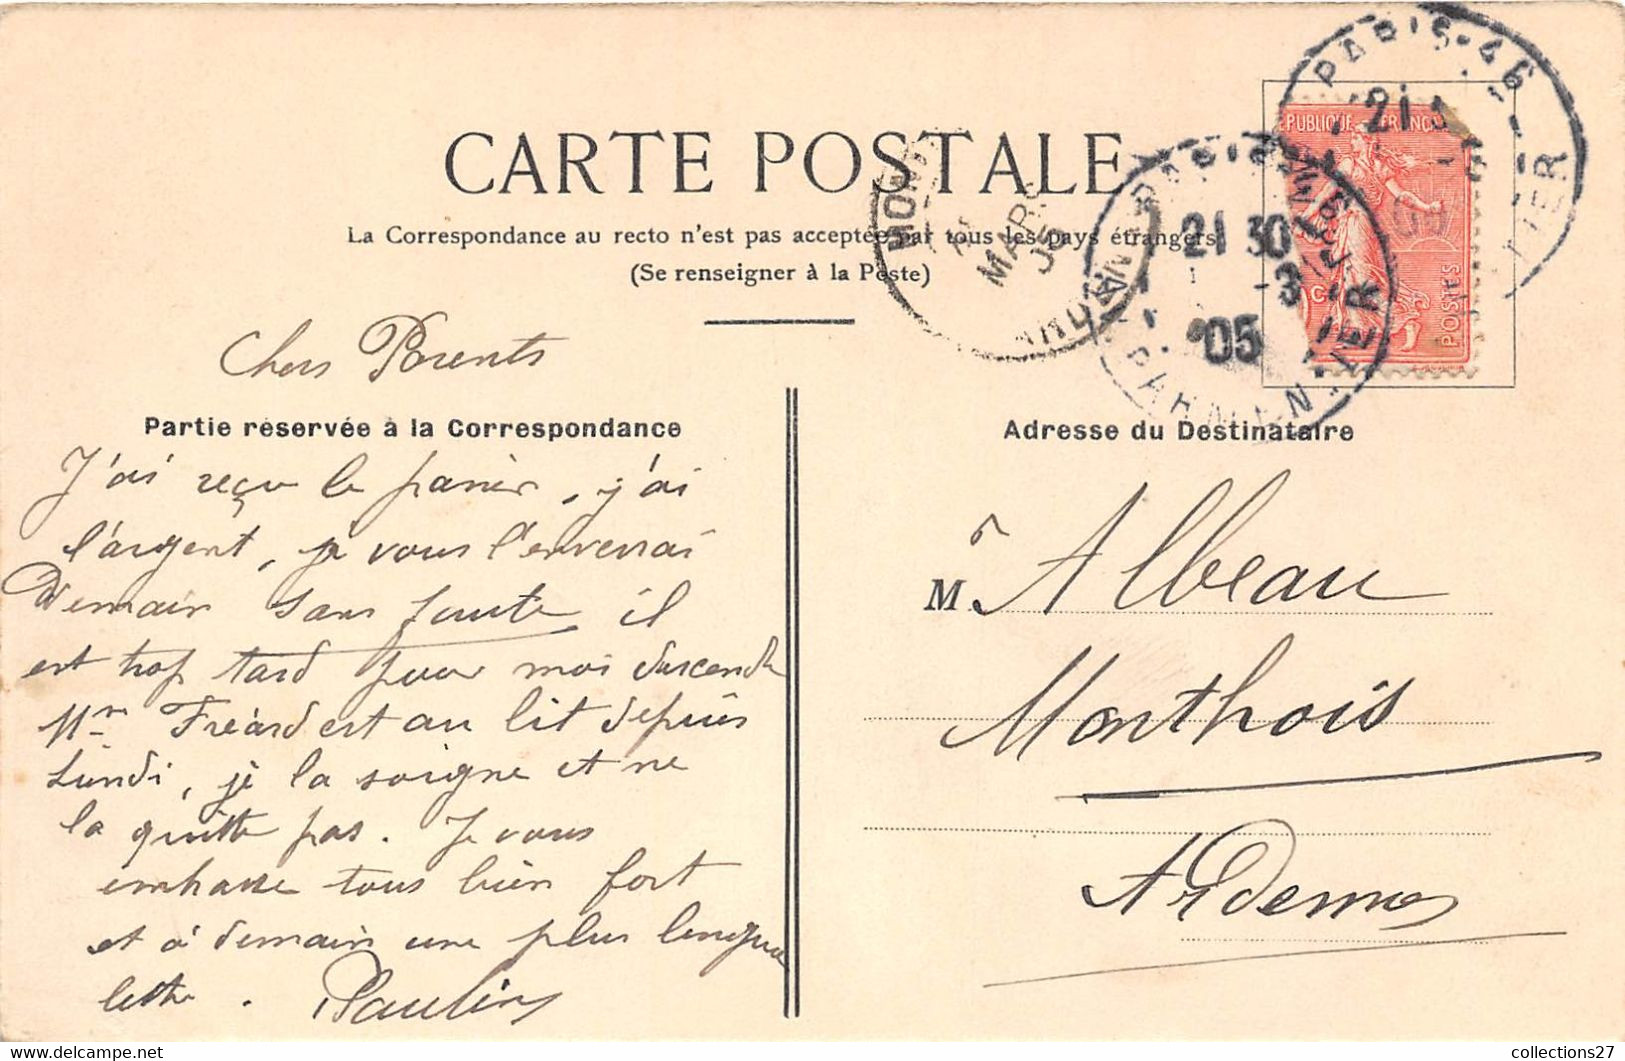 CARTE POSTALE
La Correspondance au recto n'est pas acceptée par tous les pays étrangers
(Se renseigner à la Poste)
PARIS-46
21
RÉPUBLIQUE FRANÇ
POSTES
PARIS
21 30
-3
05
PARMENTIER
MARS
05
Chers Parents
Partie réservée à la Correspondance
J'ai reçu le panier, j'ai
l'argent, je vous l'enverrai
Demain sans faute il
est trop tard pour moi descendre
Mme Fréard est au lit depuis
Lundi, je la soigne et ne
la quitte pas. Je vous
embrasse tous bien fort
et à demain une plus longue
lettre. Pauline
Adresse du Destinataire
M. r Albeau
Monthois
Ardennes
collections27